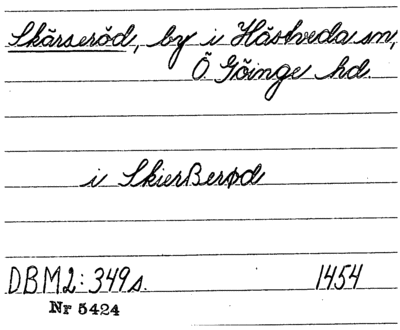 Skärseröd, by i Hästveda sn,
Ö Göinge hd.
i Skierßerød
DBM2: 349 s. 1454
Nr 5424